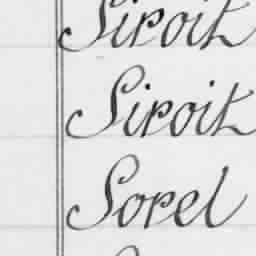 Siroit
Siroit
Sorel